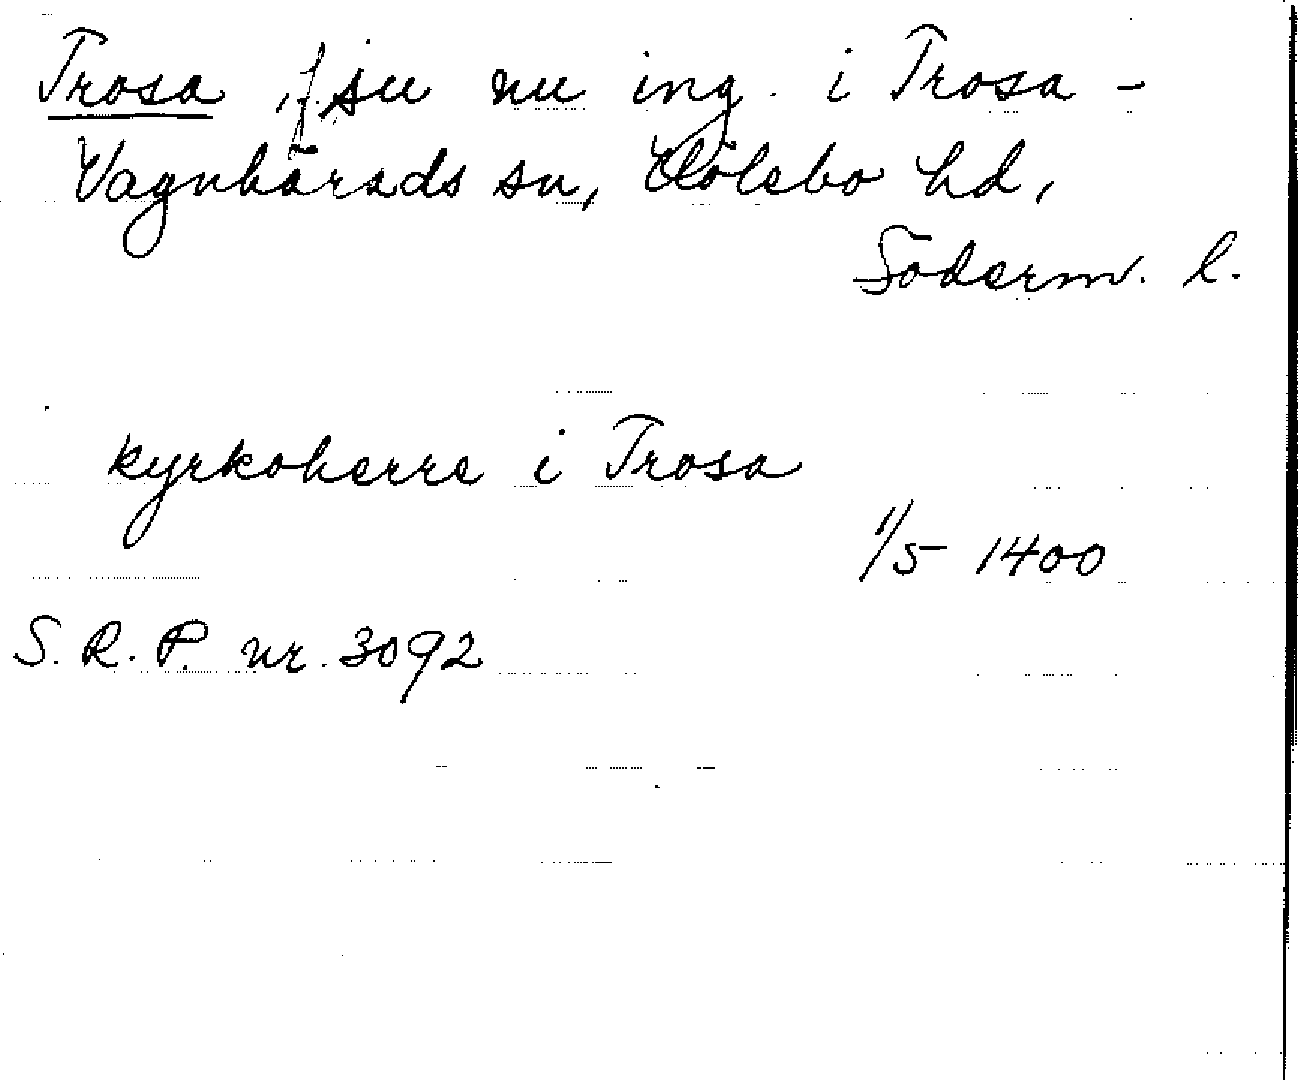 Trosa, f. sn nu ing. i Trosa -
Vagnhärads sn, Hölebo hd,
Söderm. l.
kyrkoherre i Trosa
1/5 1400
S. R. P. nr. 3092